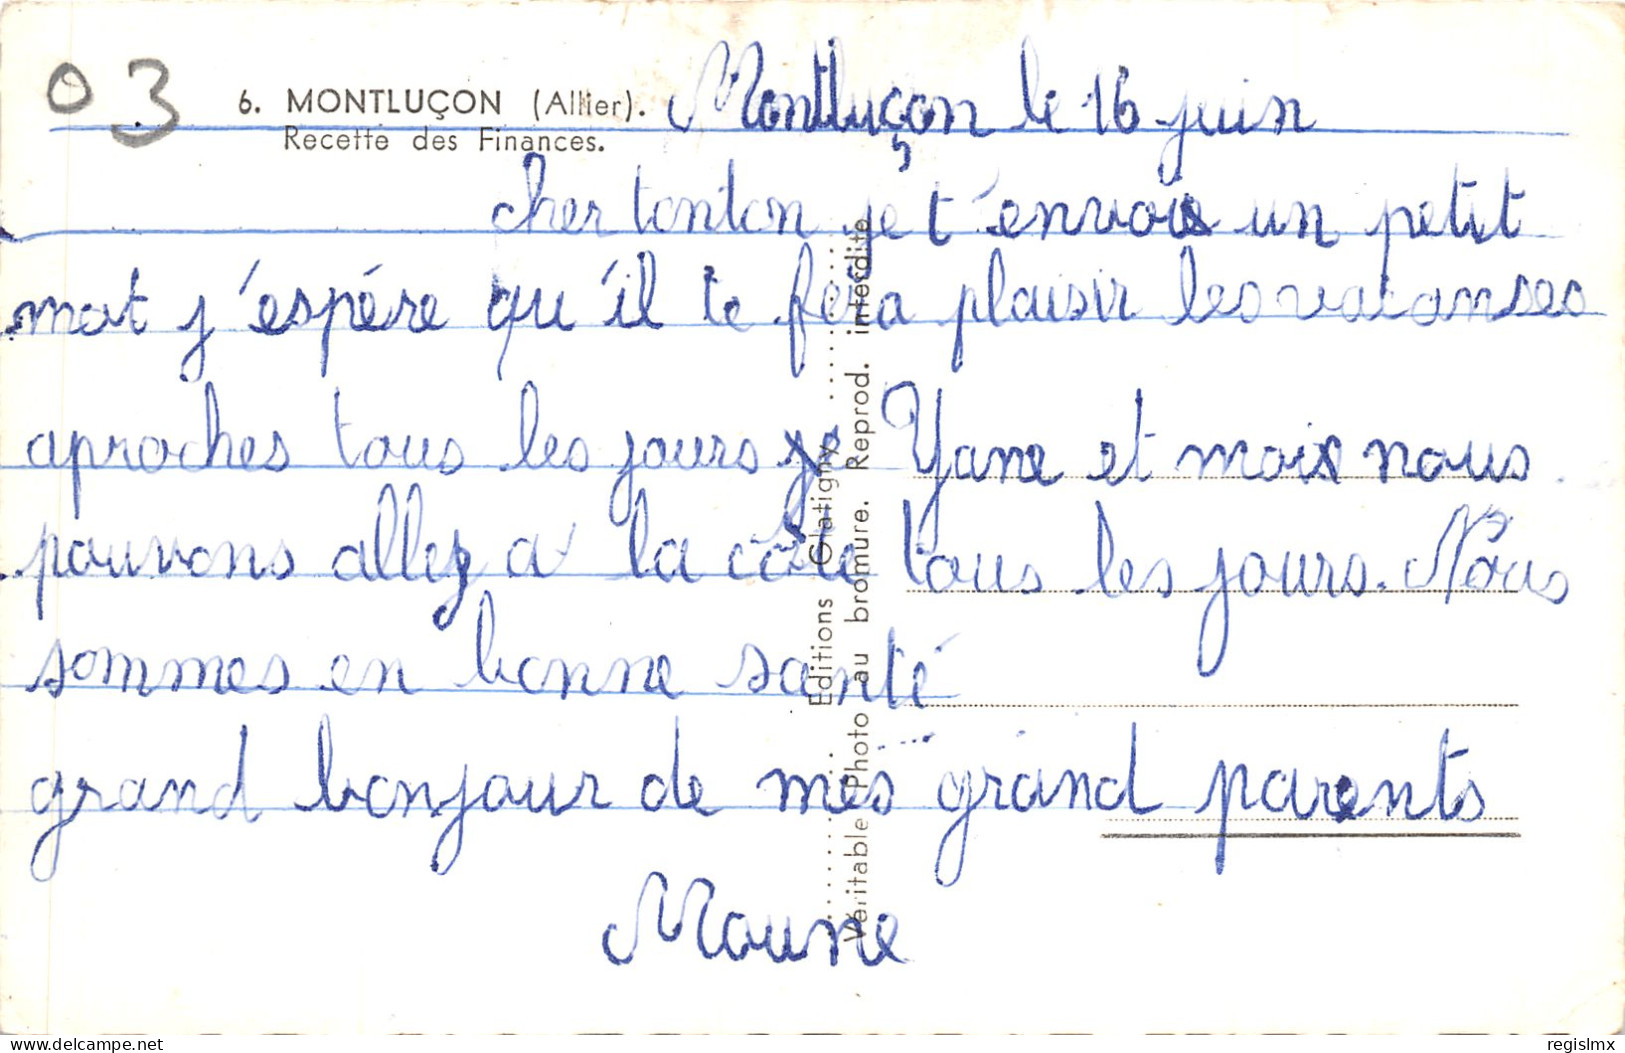 03
6. MONTLUÇON (Allier).
Recette des Finances.
Montluçon le 16 juin
cher tonton je t'envoie un petit
mot j'espére qu'il te fera plaisir les vacanses
aproches tous les jours je Yane et mois nous
pouvons allez a la côte tous les jours. Nous
sommes en bonne santé
grand bonjour de mes grand parents
Moune
Editions Glatigny
Véritable Photo au bromure. Reprod. interdite
delcampe.net
regislmx